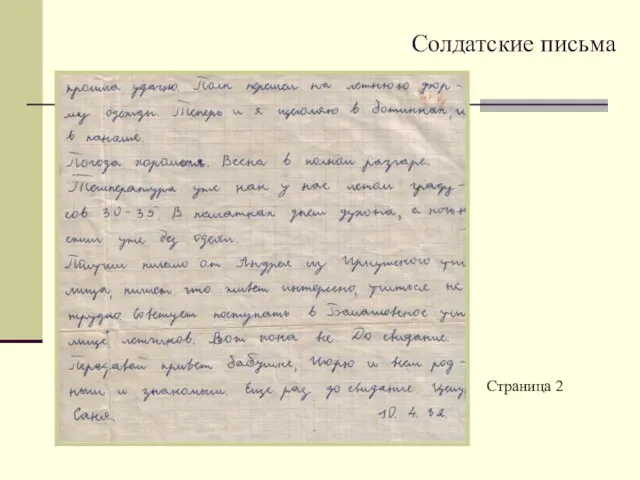 Солдатские письма
прошла удачно. Полк перешел на летнюю фор-
му одежды. Теперь и я щеголяю в ботинках, и
в панаме.
Погода хорошая. Весна в полном разгаре.
Температура уже как у нас летом граду-
сов 30-35. В палатках днем духота, а ночью
спим уже без одеял.
Получил письмо от Андрея из Иркутского учи
лища, пишет что живет интересно, учиться не
трудно. Советует поступать в Балашовское учи
лище летчиков. Вот пока все. До свидание.
Передавай привет бабушке, Юрю и всем род-
ным и знакомым. Еще раз до свидание. Целую,
Саня. 10. 4. 82
Страница 2